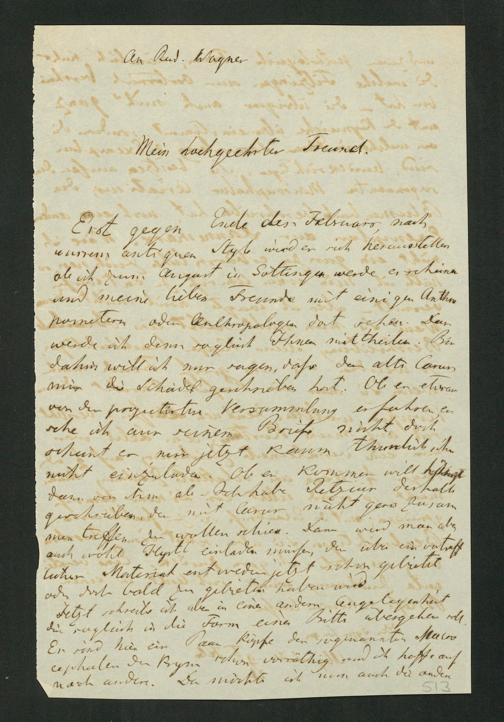 An Rud. Wagner
Mein hochgeehrter Freund.
Erst gegen Ende des Februars, nach
unserm antiquen Style wird er sich herausstellen
ob ich zum August in Göttingen werde erscheinen
und meine lieben Freunde mit einigen Anthro
pometern oder Anthropologen dort sehen. Dann
werde ich denn sogleich Ihnen mittheilen. Bis
dahin will ich nur sagen, dass der alte Carus
mir die Schädel geschrieben hat. Ob er etwas
von der projectirten Versammlung erfahren er
sehe ich aus seinem Briefe nicht doch
scheint es mir jetzt kaum thunlich ihn
nicht einzuladen. Ob er kommen will hängt
dann von ihm ab. Ich habe Retzius deshalb
geschrieben, der mit Carus nicht gern zusam
men treffen zu wollen schien. Dann wird man aber
auch wohl einladen müssen, der über ein vortreff
liches Material entweder jetzt schon gebietet
oder doch bald zu gebieten haben wird.
Jetzt schreibe ich aber in einer andern Angelegenheit
die sogleich in die Form einer Bitte übergehen soll.
Es sind hier ein Paar Köpfe der sogenannten Macro
cephalen der Krym schon vorräthig und ich hoffe auf
noch andere. Da möchte ich nun auch die andern
513